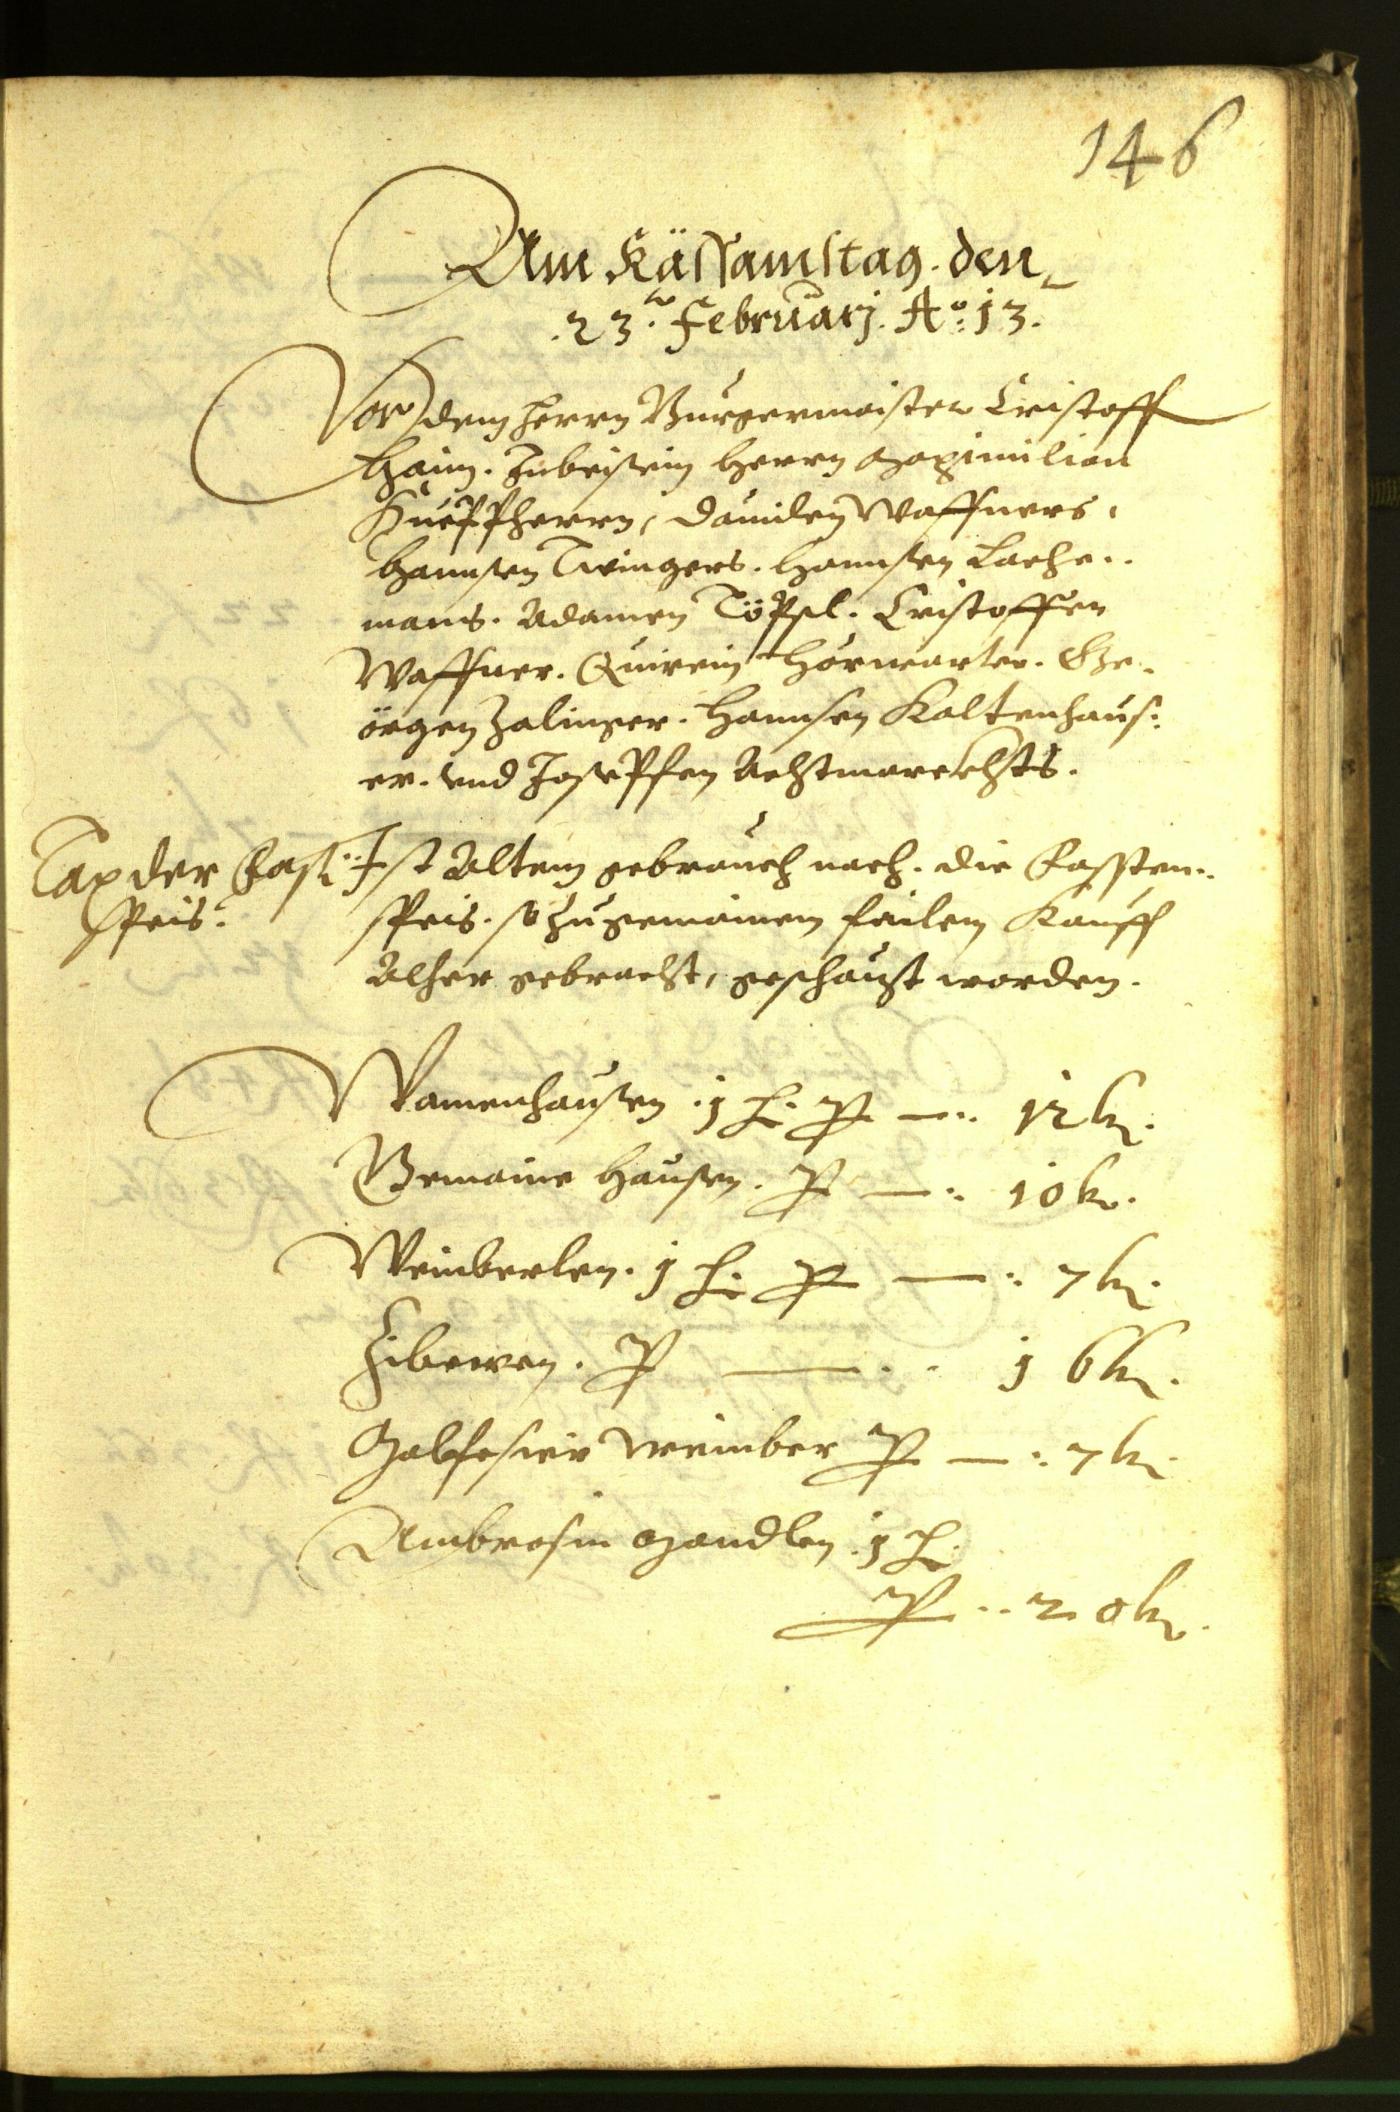 146
Am Kässamstag. den
.23.ten Februarj. Ao: 13.
Vor dem herrn Burgermaister Cristoff
Haim. Inbeisein herrn Maximilian
Küepacherrn, Dauiden Waffners,
Hannsen Twingers. Hannsen Lache..
mans. Adamen Töpsl. Cristoffen
Waffner. Quirein Hörwarter. Ge-
örgen Zalinger. Hannsen Kaltenhaus:
er. vnd Josepffen Achtmarckhts.
Tax der Fast:
speis:
Ist Altem gebrauch nach. die Fassten..
speis. so zu gemainem failem Kauff
Alher gebracht, geschäzt worden.
hausen. 1 H. P — .. 12 kr.
Gemaine Hausen. P — .. 10 kr.
Weinberlen. 1 H. P — .. 7 kr.
Zibewen. P — .. 1 6 kr.
Malfasier weinber P — .. 7 kr.
Ambrosin Mandlen. 1 H.
P .. 20 kr.